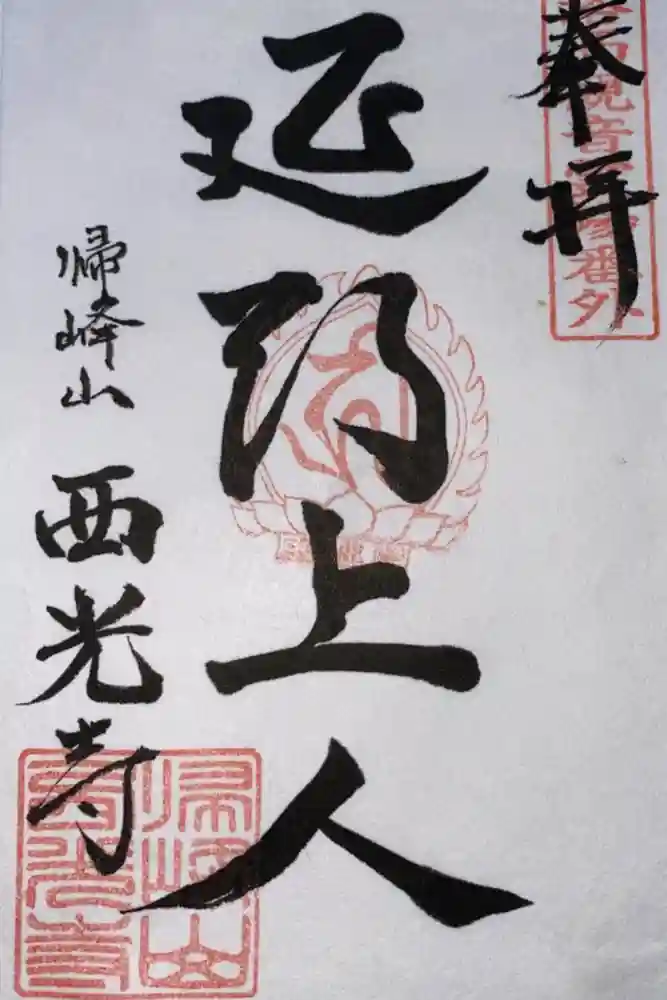 奉拝
観音霊場番外
延朗上人
帰峰山 西光寺
帰峰山
西光寺